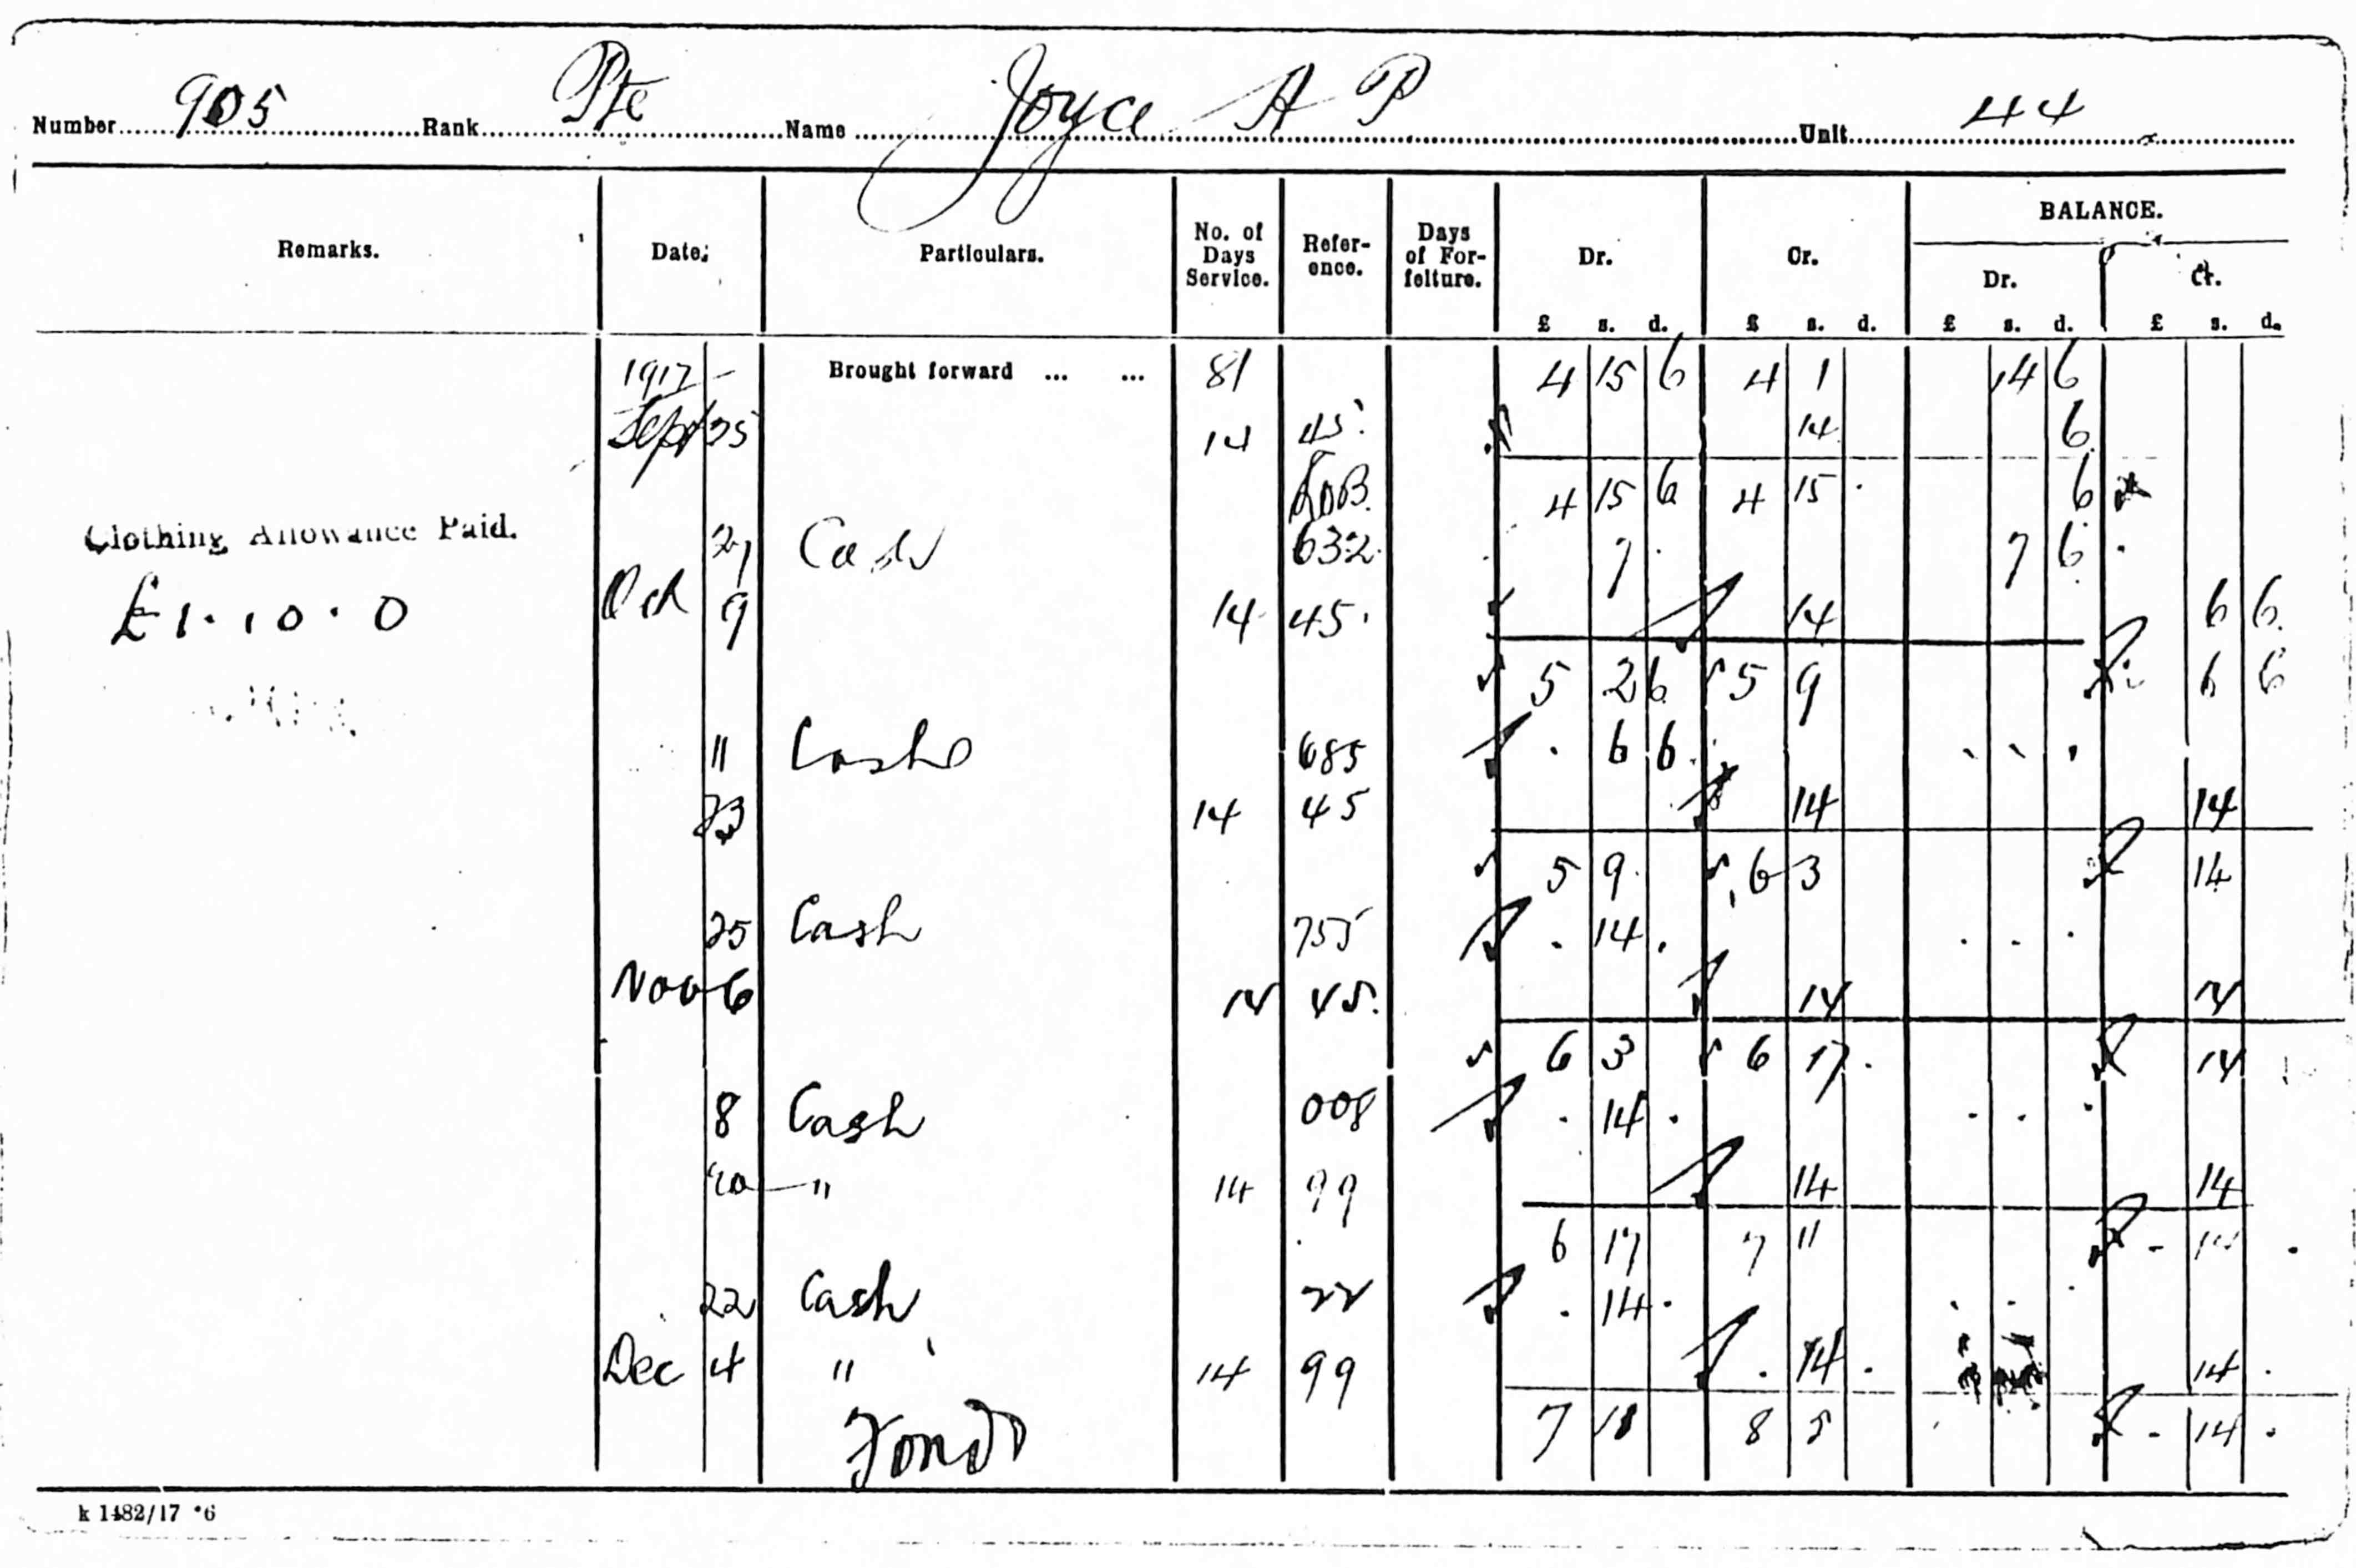 Number 905 Rank Pte Name Joyce A P Unit 44
Remarks. Date. Particulars. No. of Days Service. Refer-ence. Days of For-feiture. Dr. Cr. BALANCE.
Dr. Cr.
£ s. d. £ s. d. £ s. d. £ s. d.
1917 Brought forward ... ... 81 4 15 6 4 1 14 6
Sept 25 14 45 14 6
4 15 6 4 15 6
Clothing Allowance Paid. 27 Cash 632 7 7 6
£1.10.0 Oct 9 14 45. 14 6 6
5 2 6 5 9 6 6
11 Cash 685 6 6
23 14 45 14 14
5 9 6 3 14
25 Cash 755 14
Nov 6 14 45. 14 14
6 3 6 17 14
8 Cash 008 14
20 " 14 99 14 14
6 17 7 11 - 14
22 Cash 22 14
Dec 4 " 14 99 14 14
7 11 8 5 - 14
k 1482/17 *6